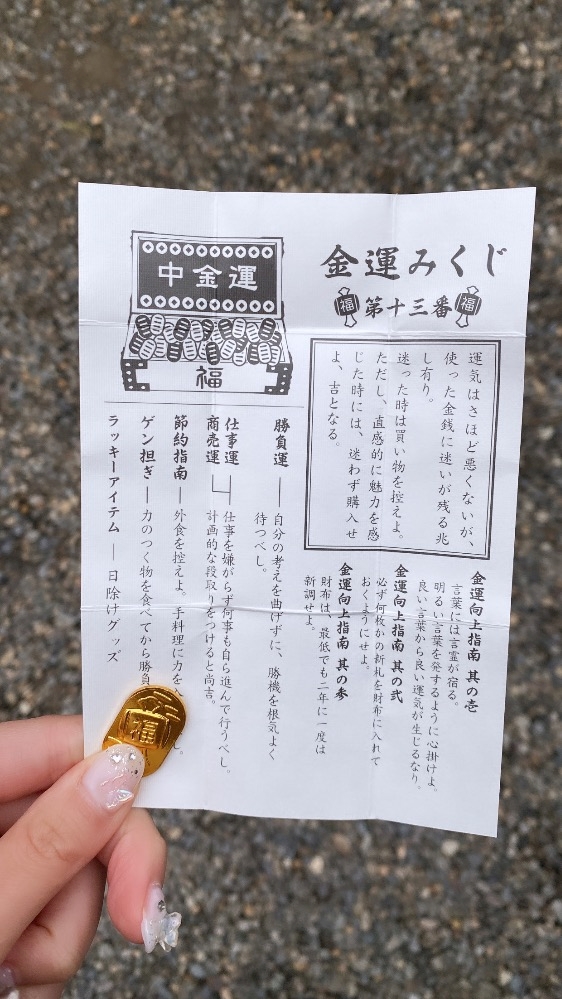 金運みくじ
福 第十三番 福
中金運
福
運気はさほど悪くないが、
使った金銭に迷いが残る兆
し有り。
迷った時は買い物を控えよ。
ただし、直感的に魅力を感
じた時には、迷わず購入せ
よ、吉となる。
金運向上指南 其の壱
言葉には言霊が宿る。
明るい言葉を発するように心掛けよ。
良い言葉から良い運気が生じるなり。
金運向上指南 其の弐
必ず何枚かの新札を財布に入れて
おくようにせよ。
金運向上指南 其の参
財布は、最低でも二年に一度は
新調せよ。
勝負運 ― 自分の考えを曲げずに、勝機を根気よく
待つべし。
仕事運
商売運
仕事を嫌がらず何事も自ら進んで行うべし。
計画的な段取りをつけると尚吉。
節約指南 ― 外食を控えよ。手料理に力を
ゲン担ぎ ― 力のつく物を食べてから勝負
ラッキーアイテム ― 日除けグッズ
福